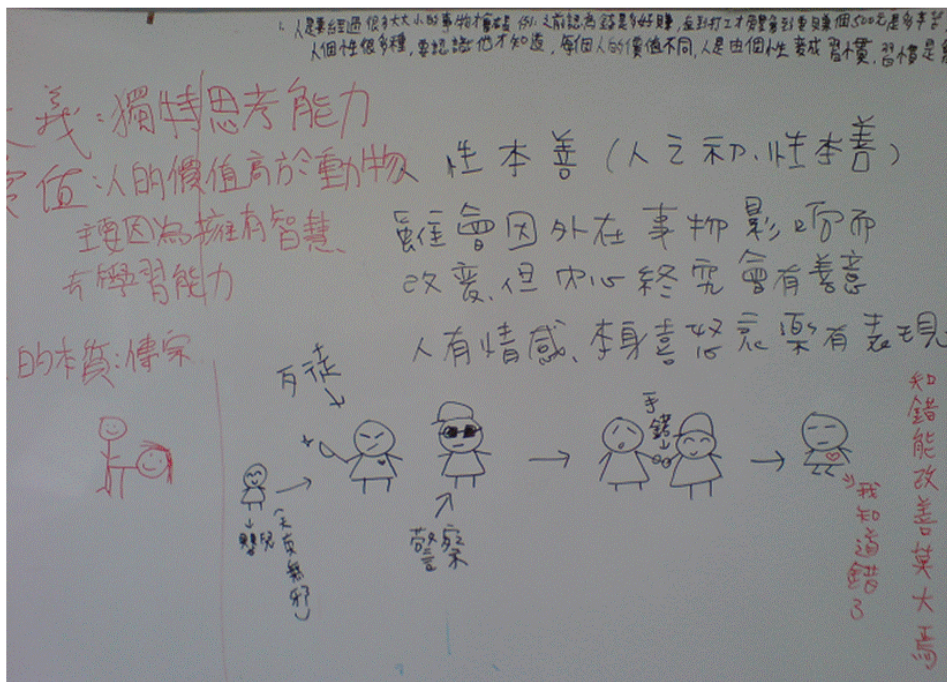 1. 人是要經過很多大大小小的事物才會成長 例:以前認為錢是多好賺,直到打工才覺得到要賺個500元是多辛苦
人個性很多種,要認識他才知道,每個人的價值不同,人是由個性變成習慣,習慣是
義:獨特思考能力
價值:人的價值高於動物
主要因為擁有智慧、
有學習能力
的本質:傳宗
性本善(人之初、性本善)
雖會因外在事物影响而
改变、但內心終究會有善意
人有情感、本身喜怒哀樂有表現
歹徒
手銬
嬰兒
(天真無邪)
警察
我知道錯了
知錯能改善莫大焉